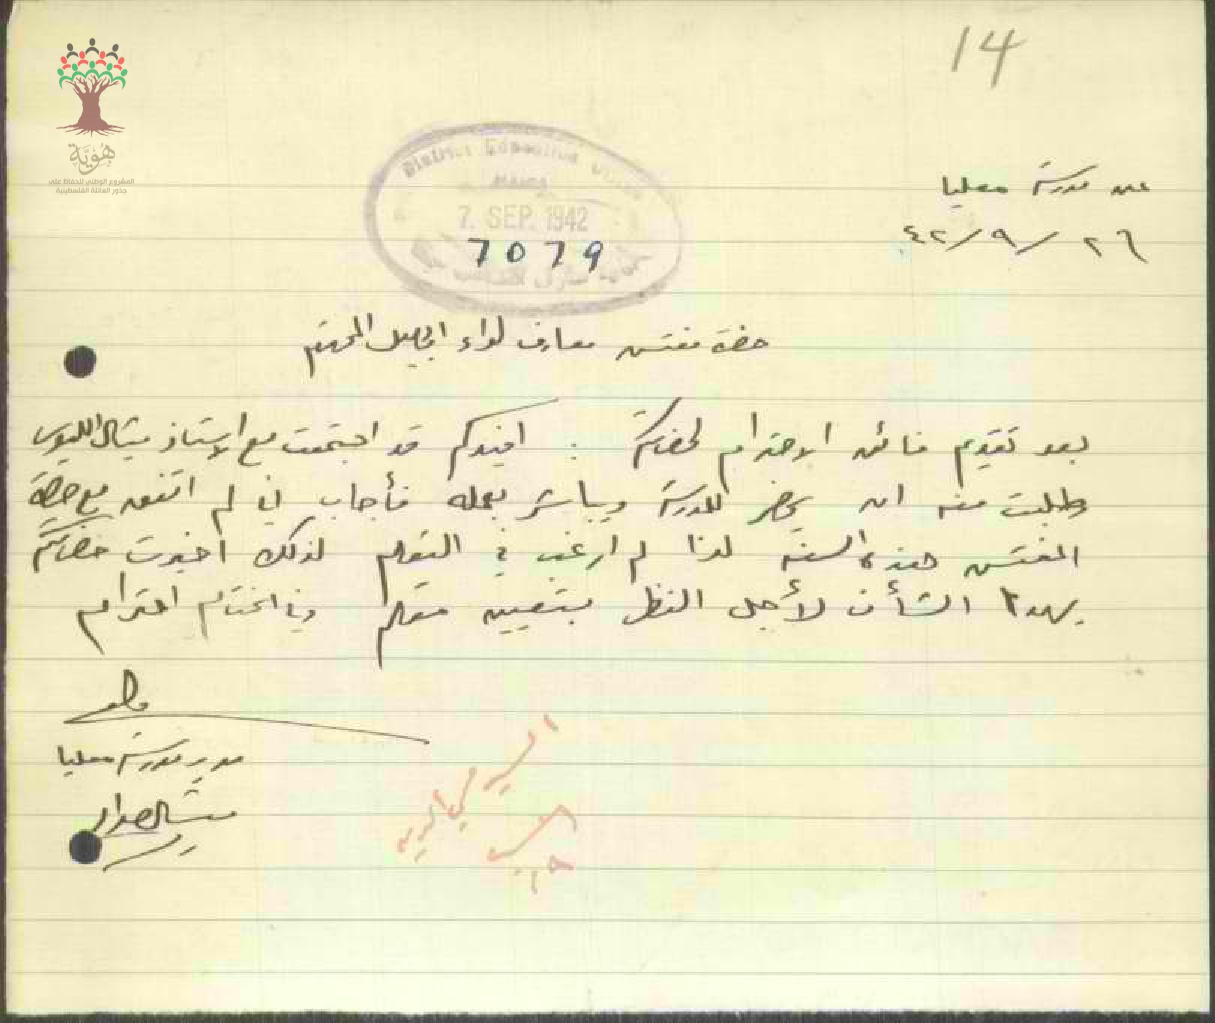 14
هوية
المشروع الوطني للحفاظ على
جذور العائلة الفلسطينية
District Education Office
7. SEP. 1942
7079
عن مدرسة معليا
٢٦/٩/٤٢
حضرة مفتش معارف لواء الجليل المحترم
بعد تقديم فائق الاحترام لحضرتكم : افيدكم قد اجتمعت مع الاستاذ ميشال
وطلبت منه ان يحضر للمدرسة ويباشر بعمله فأجاب اني لم اتفق مع حضرة
المفتش هذه السنة لذا لم ارغب في التعليم لذلك اخبرت حضرتكم
بهذا الشأن لأجل النظر بتعيين معلم وفي الختام احترام
مدير مدرسة معليا
ميشال
السيد